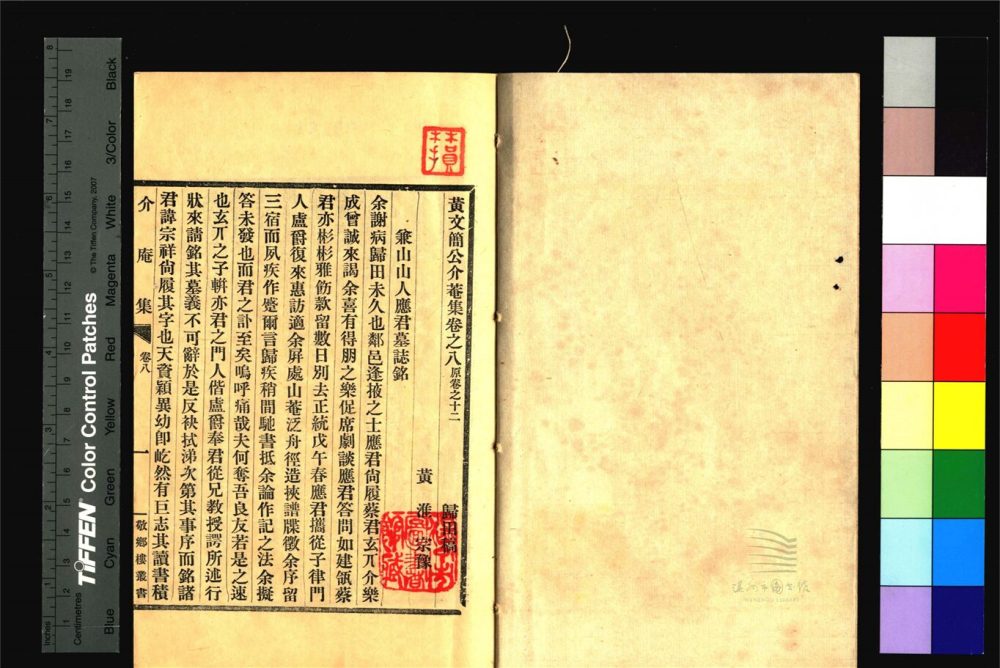 黃文簡公介菴集卷之八原卷之十二
歸田稿
黃淮宗豫
兼山山人應君墓誌銘
余謝病歸田未久也鄰邑逢掖之士應君尙履蔡君玄丌介樂
成曾誠來謁余喜有得朋之樂促席劇談應君答問如建瓴蔡
君亦彬彬雅飭款留數日別去正統戊午春應君攜從子律門
人盧爵復來惠訪適余屏處山菴泛舟徑造挾譜牒徵余序留
三宿而夙疾作蹙爾言歸疾稍間馳書抵余論作記之法余擬
答未發也而君之訃至矣嗚呼痛哉夫何奪吾良友若是之速
也玄丌之子輧亦君之門人偕盧爵奉君從兄教授諤所述行
狀來請銘其墓義不可辭於是反袂拭涕次第其事序而銘諸
君諱宗祥尙履其字也天資穎異幼卽屹然有巨志其讀書積
介庵集
卷八
一
敬鄉樓叢書
TIFFEN Color Control Patches
© The Tiffen Company, 2007
Inches
Centimetres
1 2 3 4 5 6 7 8
1 2 3 4 5 6 7 8 9 10 11 12 13 14 15 16 17 18 19
Blue
Cyan
Green
Yellow
Red
Magenta
White
3/Color
Black
温州市图书馆
WENZHOU LIBRARY